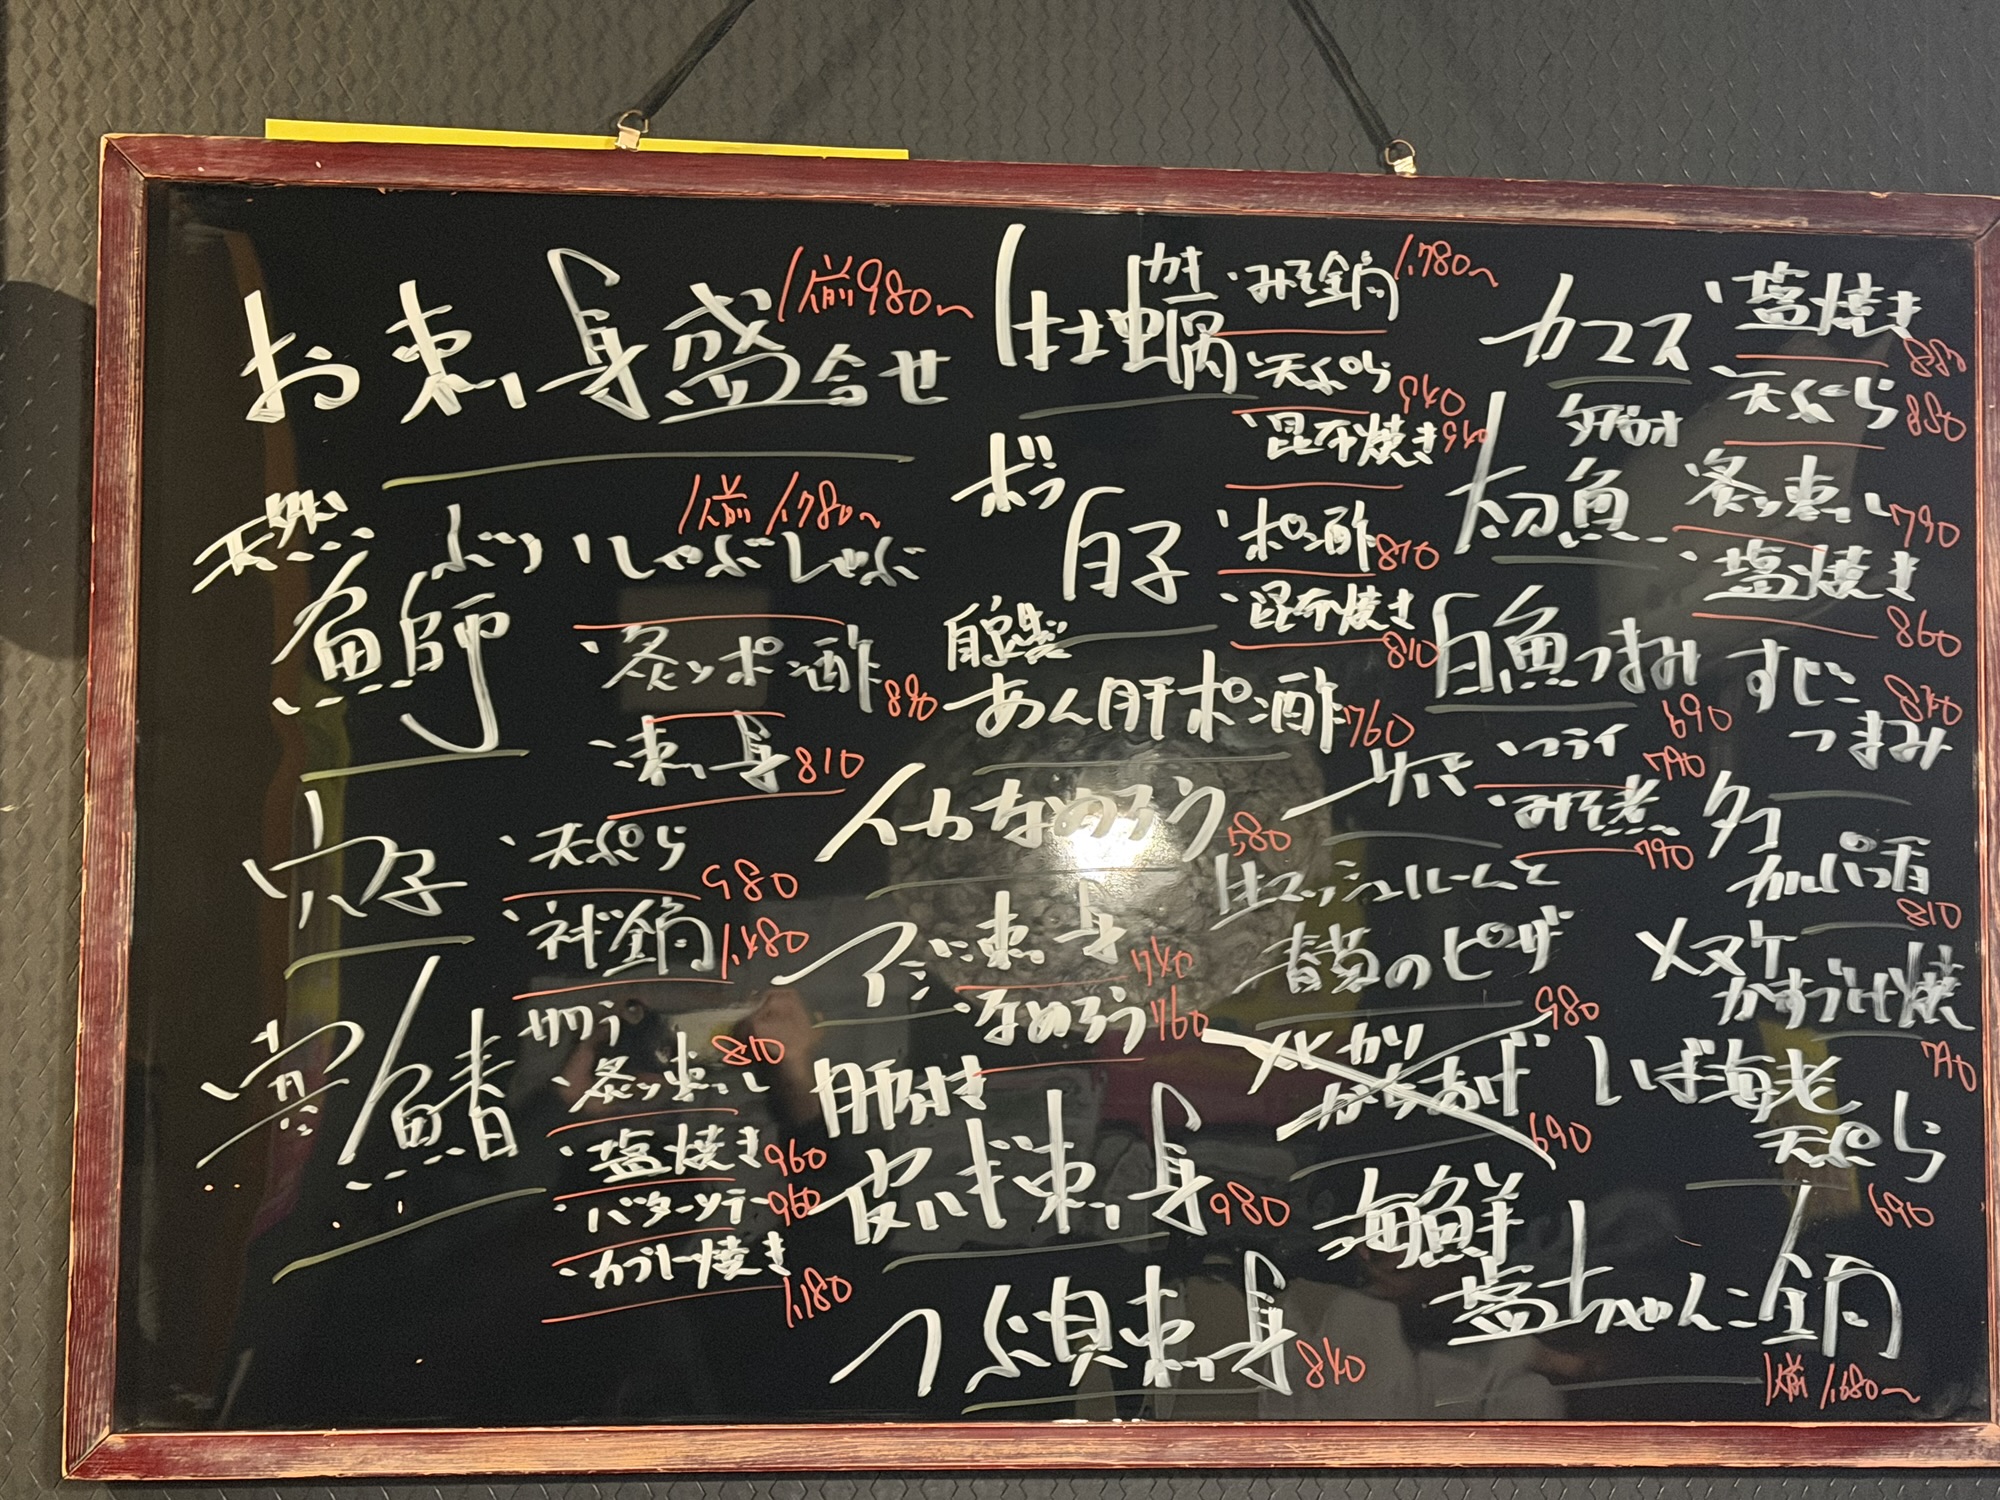 お刺身盛合せ 1人前980〜
天然
魚師 ぶり ・しゃぶしゃぶ 1人前 1,780〜
・炙りポン酢 890
・刺身 810
穴子 ・天ぷら 980
・鍋 1,480
真鯖
・炙り刺し 810
・塩焼き 960
・バターソテー 960
・カブト焼き 1,180
牡蠣 カキ ・みそ鍋 1,780〜
・天ぷら 940
・昆布焼き 940
ボラ
白子 ・ポン酢 810
・昆布焼き 810
自家製
あん肝ポン酢 760
イカなめろう 580
アジ・刺身 740
・なめろう 760
肝付き
皮ハギ刺身 980
つぶ貝刺身 840
カマス ・塩焼き 880
・天ぷら 880
タチウオ
太刀魚 炙り刺し 790
・塩焼き 860
白魚つまみ 690
すじこ
つまみ 840
サバ ・フライ 790
・みそ煮 790
タコ
カルパッチョ 810
生マッシュルームと
春菊のピザ 980
メヌケ
かすづけ焼 790
メヒカリ
からあげ 690
しば海老
天ぷら 690
海鮮
塩ちゃんこ鍋
1人前 1,680〜